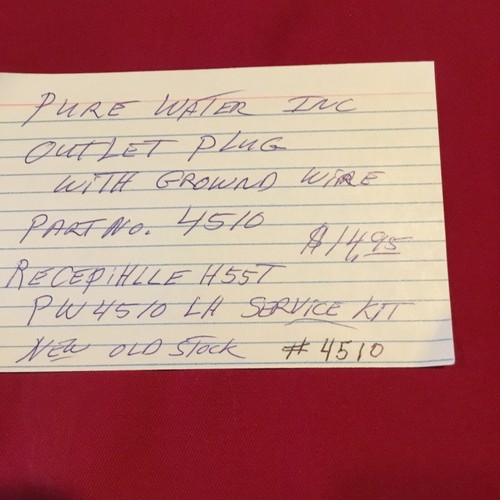 PURE WATER INC
OUTLET PLUG
WITH GROWND WIRE
PART NO. 4510
$14.95
RECEPIHLLE H55T
PW4510 LH SERVICE KIT
NEW OLD STOCK #4510